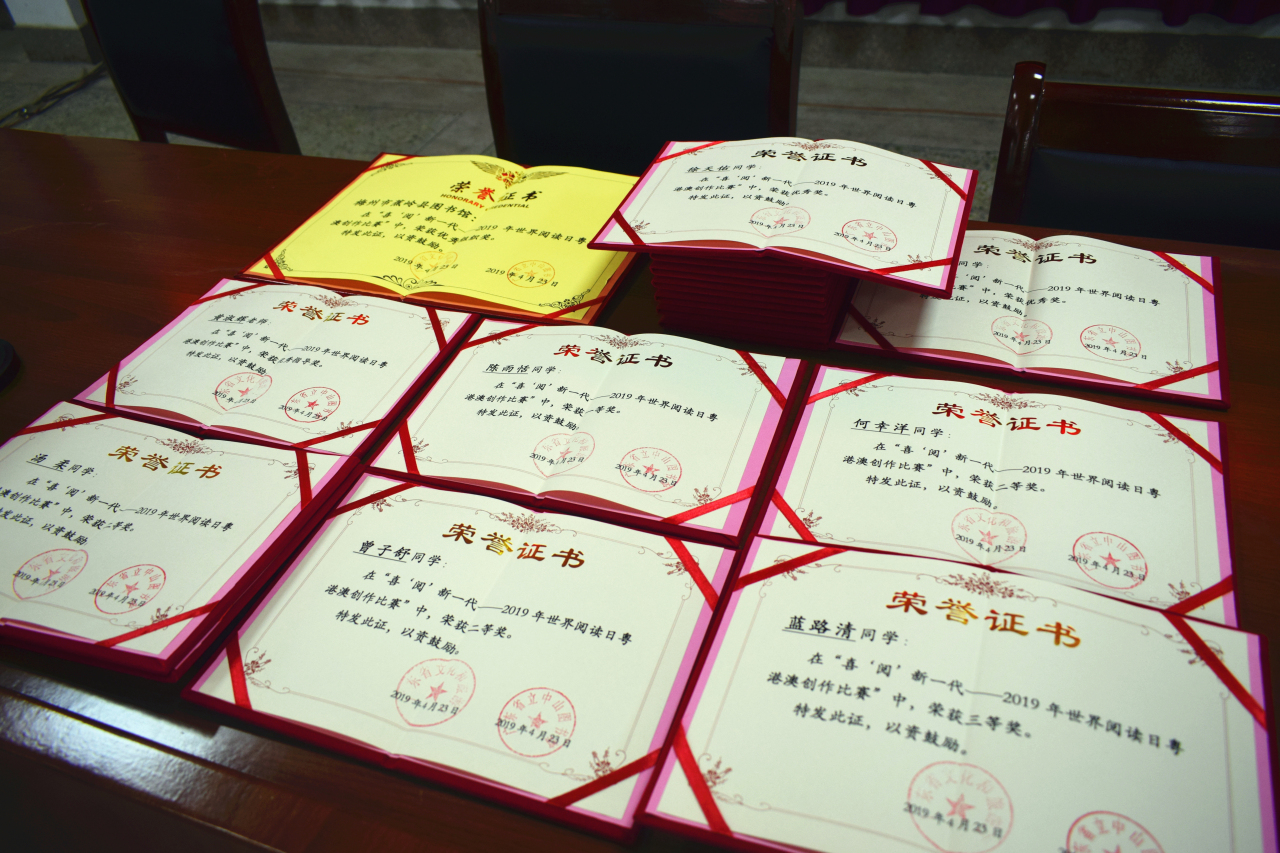 荣誉证书
HONORARY CREDENTIAL
梅州市蕉岭县图书馆：
在“喜‘阅’新一代——2019年世界阅读日粤
港澳创作比赛”中，荣获优秀组织奖。
特发此证，以资鼓励。
2019年4月23日
荣誉证书
徐天依同学
在“喜‘阅’新一代——2019年世界阅读日粤
港澳创作比赛”中，荣获优秀奖。
特发此证，以资鼓励。
2019年4月23日
2019年4月23日
荣誉证书
同学：
‘阅’新一代——2019年世界阅读日粤
赛”中，荣获优秀奖。
以资鼓励。
2019年4月23日
2019年4月23日
荣誉证书
老师：
在“喜‘阅’新一代——2019年世界阅读日粤
港澳创作比赛”中，荣获指导奖。
特发此证，以资鼓励。
2019年4月23日
荣誉证书
陈雨恬同学：
在“喜‘阅’新一代——2019年世界阅读日粤
港澳创作比赛”中，荣获一等奖。
特发此证，以资鼓励。
2019年4月23日
2019年4月23日
荣誉证书
何幸洋同学：
在“喜‘阅’新一代——2019年世界阅读日粤
港澳创作比赛”中，荣获二等奖。
特发此证，以资鼓励。
2019年4月23日
2019年4月23日
荣誉证书
汤柔同学：
在“喜‘阅’新一代——2019年世界阅读日粤
港澳创作比赛”中，荣获二等奖。
特发此证，以资鼓励。
2019年4月23日
2019年4月23日
荣誉证书
曾子舒同学：
在“喜‘阅’新一代——2019年世界阅读日粤
港澳创作比赛”中，荣获二等奖。
特发此证，以资鼓励。
2019年4月23日
2019年4月23日
荣誉证书
蓝路清同学：
在“喜‘阅’新一代——2019年世界阅读日粤
港澳创作比赛”中，荣获三等奖。
特发此证，以资鼓励。
2019年4月23日
省立中山图